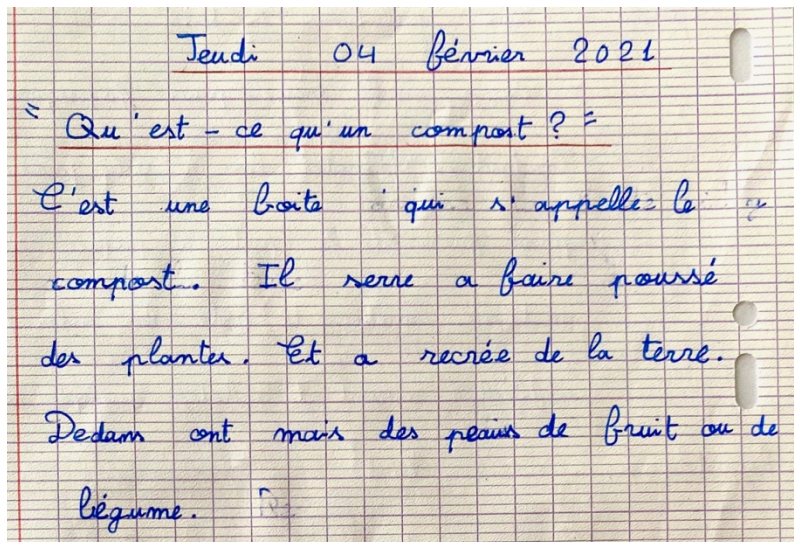 Jeudi 04 février 2021
" Qu'est-ce qu'un compost ? "
C'est une boite qui s'appelle le
compost. Il serre a faire poussé
des plantes. Et a recrée de la terre.
Dedans ont mais des peaux de fruit ou de
légume.